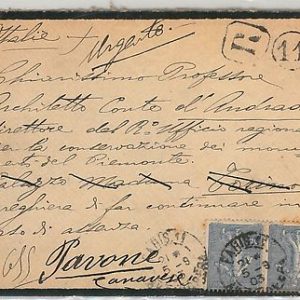 Italie +
Urgente.
R
11
Chiarissimo Professore
Architetto Conte d'Andrad
Direttore del R° Ufficio regiona
per la conservazione dei monu
enti del Piemonte.
Palazzo Madama Torino
preghiera di far continuare in
caso di assenza.
Pavone
Canavese
PARIS